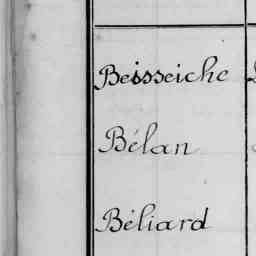 Beisseiche
Bélan
Béliard